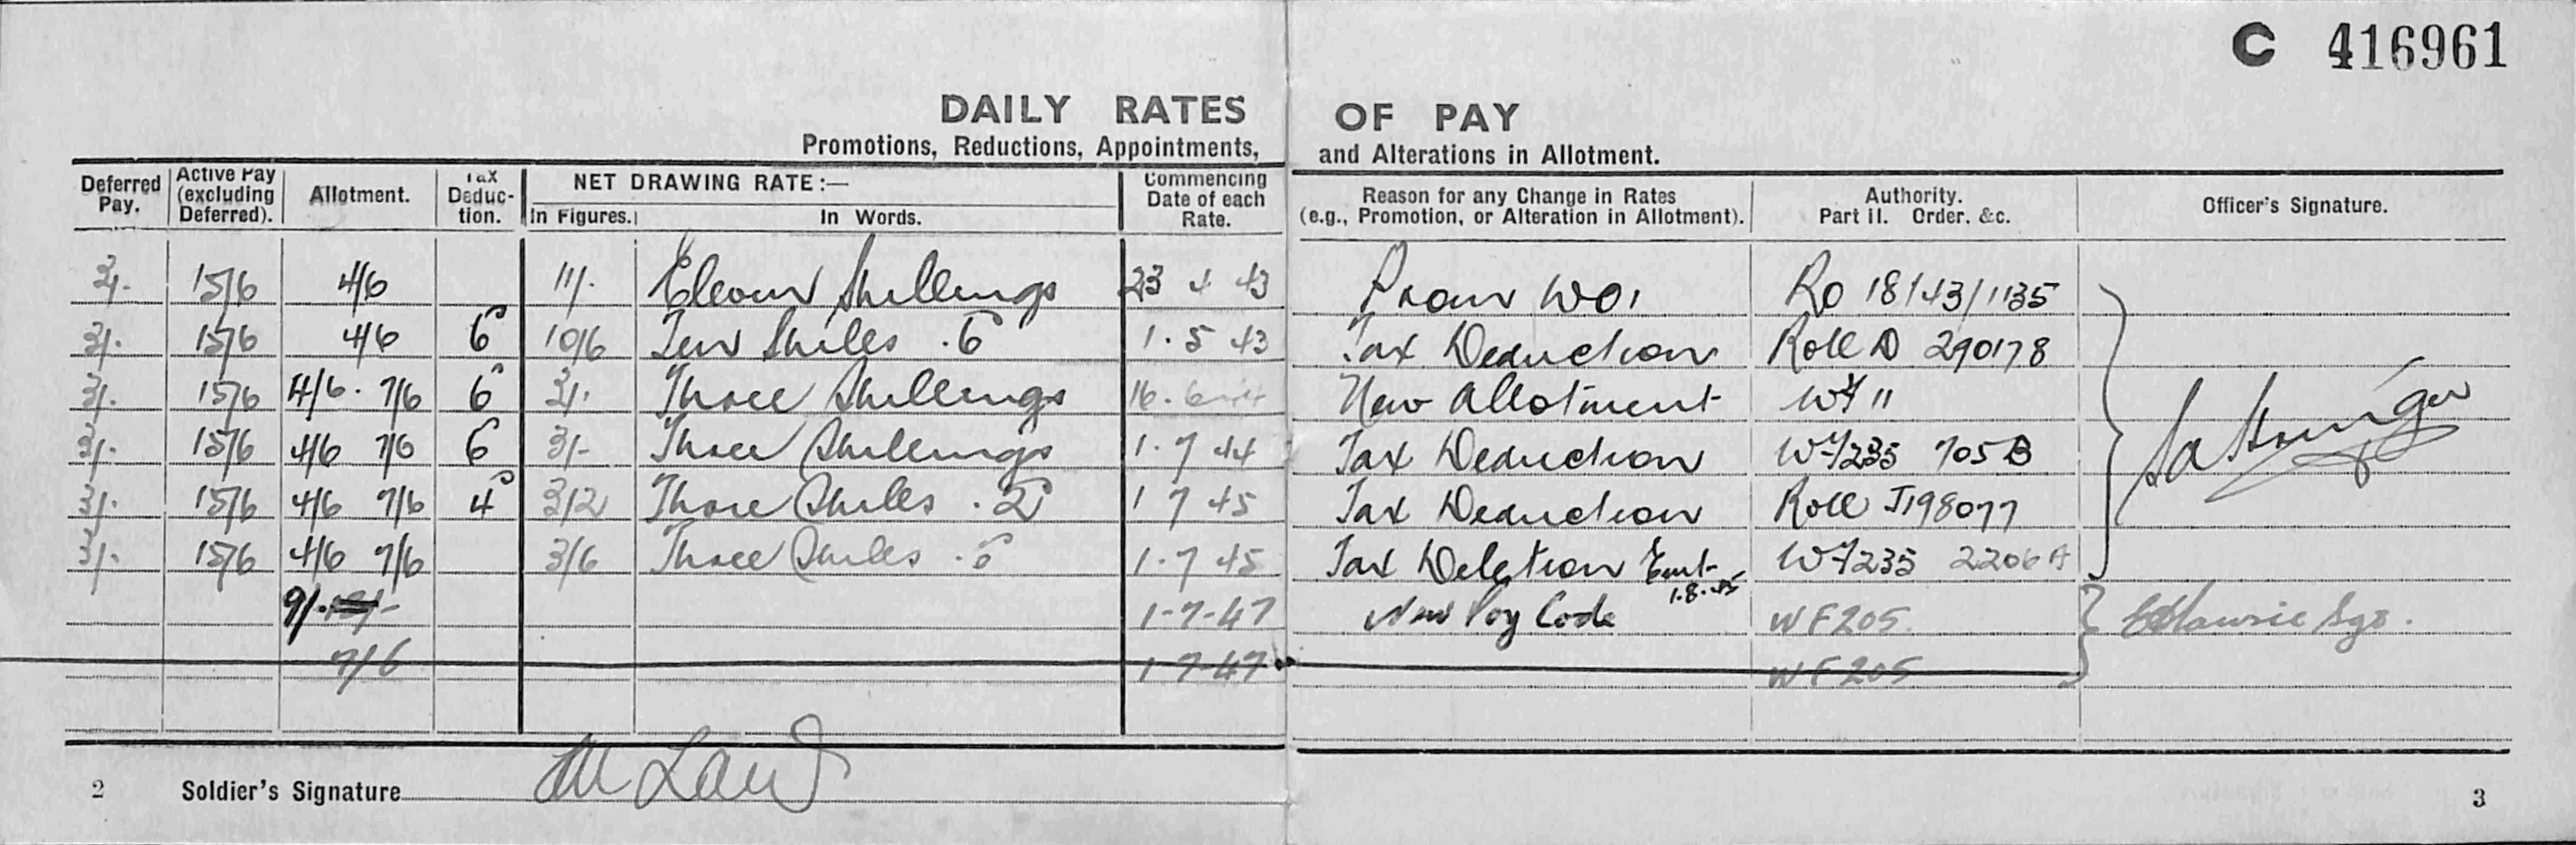 C 416961
DAILY RATES OF PAY
Promotions, Reductions, Appointments, and Alterations in Allotment.
Deferred Pay. Active Pay (excluding Deferred). Allotment. Tax Deduction. NET DRAWING RATE:— In Figures. In Words. Commencing Date of each Rate. Reason for any Change in Rates (e.g., Promotion, or Alteration in Allotment). Authority. Part II. Order, &c. Officer's Signature.
3/- 15/6 4/6 11/- Eleven Shillings 23 4 43 Prom WO1 Ro 18/43/1135
3/- 15/6 4/6 6 10/6 Ten Shills .6 1.5 43 Tax Deduction Roll D 290178
3/- 15/6 4/6. 7/6 6 3/- Three Shillings 16. New Allotment WF 11
3/- 15/6 4/6 7/6 6 3/- Three Shillings 1.7 44 Tax Deduction WF235 705B
3/- 15/6 4/6 7/6 4 3/2 Three Shills .2 1 7 45 Tax Deduction Roll J198077
3/- 15/6 4/6 7/6 3/6 Three Shills .6 1.7 45 Tax Deletion 1.8.45 WF235 2206A
9/- 1-7-47 New Pay Code WF205 Sgt.
7/6 1-7-47 WF205
2 Soldier's Signature 3